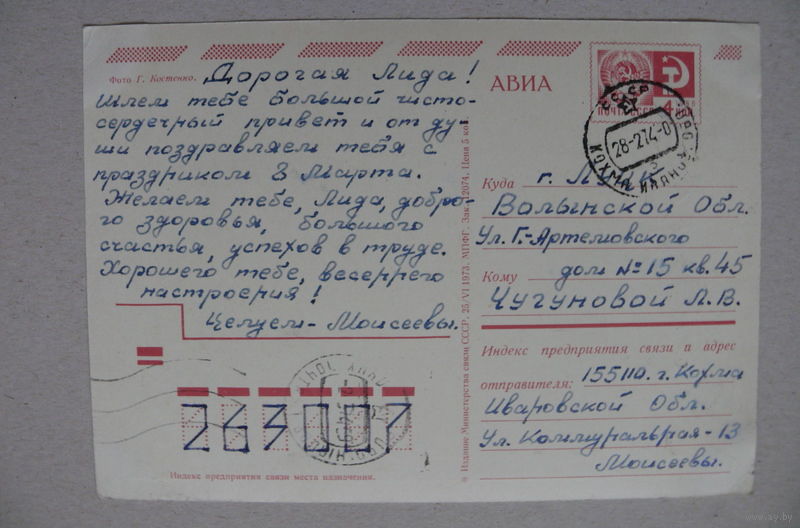 Фото Г. Костенко.
Дорогая Лида!
Шлем тебе большой чисто-
сердечный привет и от ду-
ши поздравляем тебя с
праздником 8 Марта.
Желаем тебе, Лида, добро-
го здоровья, большого
счастья, успехов в труде.
Хорошего тебе, весеннего
настроения!
Целуем - Моисеевы.
263007
Индекс предприятия связи места назначения.
Издание Министерства связи СССР. 25/VI 1973. МПФГ. Зак. 12074. Цена 5 коп.
АВИА
ПОЧТА СССР
4
28-2.74-0
Куда г. Луцк
Волынской Обл.
Ул. Г.-Артемовского
Кому дом №15 кв. 45
Чугуновой Л.В.
Индекс предприятия связи и адрес
отправителя: 155110. г. Кохма
Ивановской Обл.
Ул. Коммунальная-13
Моисеевы.
www.ay.by